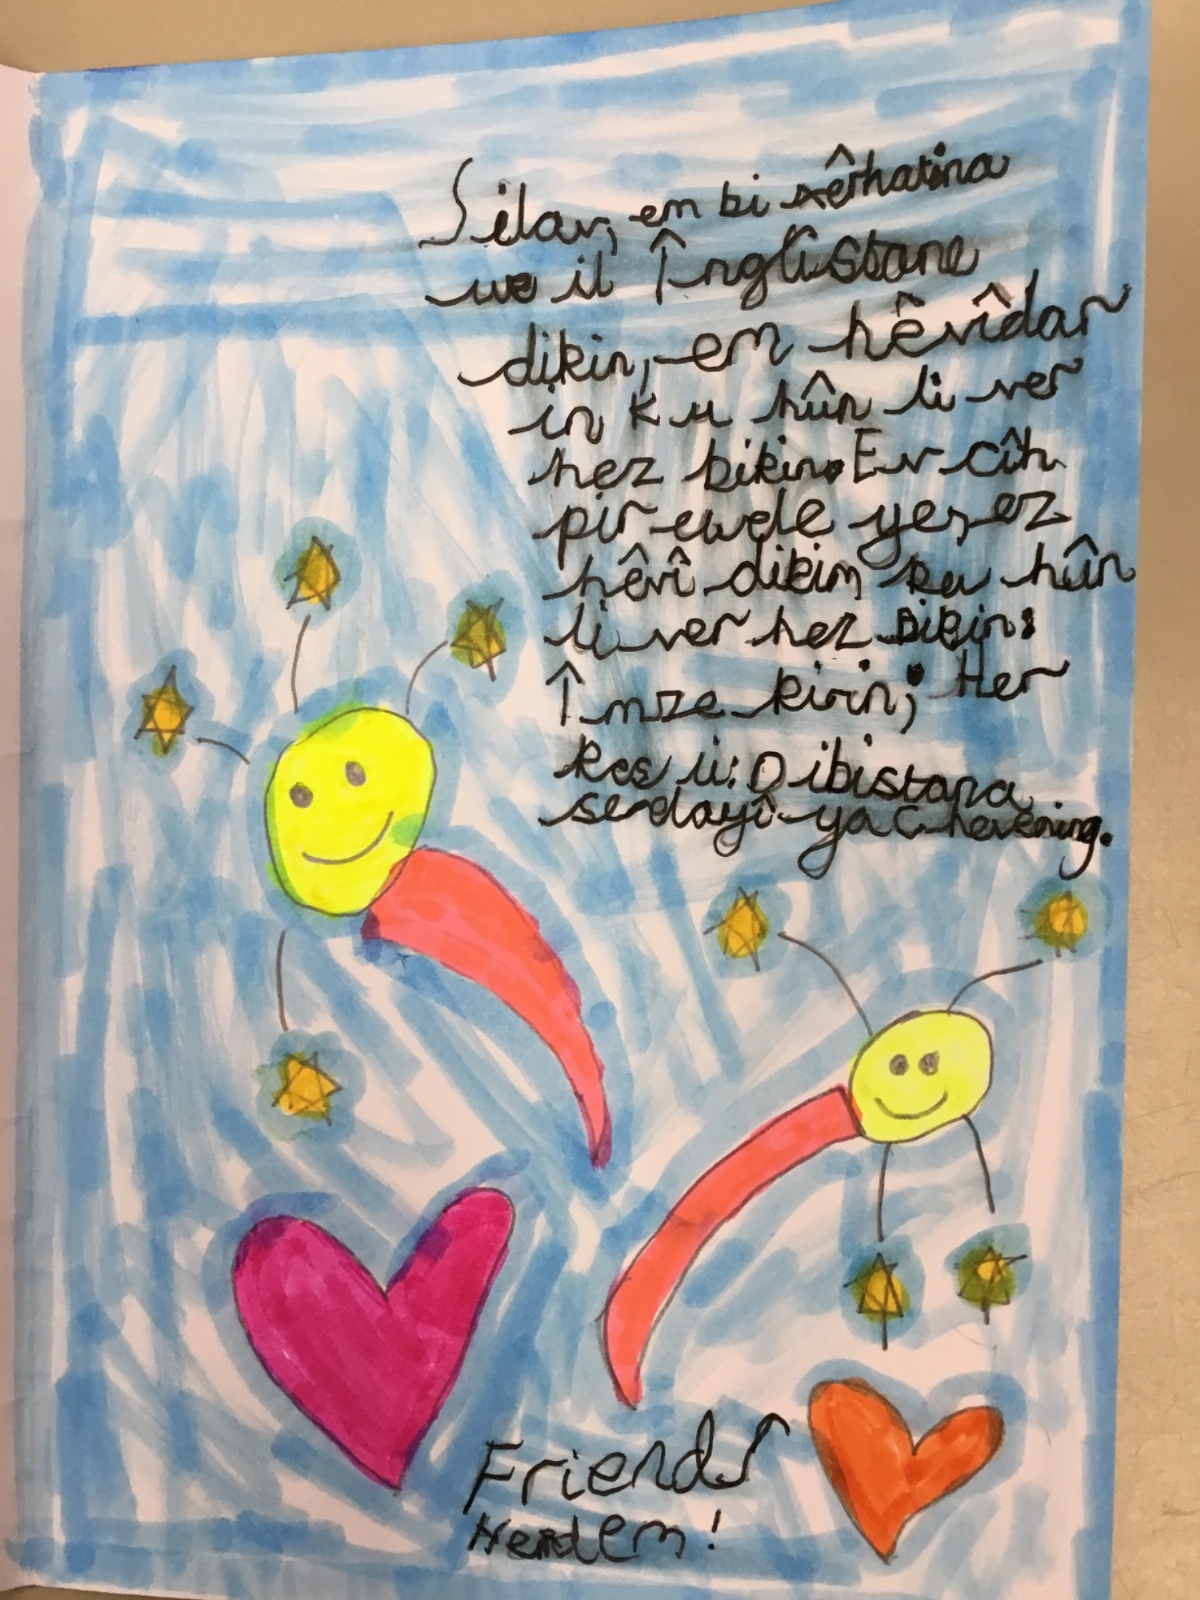 Silav, em bi xêrhatina
we il Înglîstane
dikin, em hêvîdar
in ku hûn li ver
hez bikin. Ev cîh
pir ewle ye, ez
hêvî dikim ku hûn
li ver hez bikin:
Îmze kirin; Her
kes ii: Dibistana
seedayî ya Chevening.
Friends
Herdem!